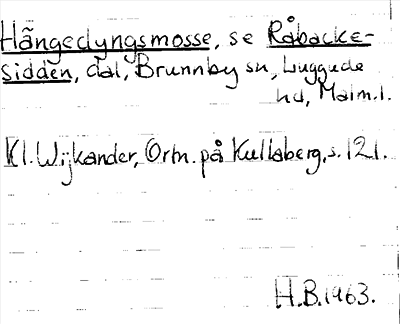 Hängedyngsmosse, se Råbacke-
sidden, dal, Brunnby sn, Luggude
hd, Malm.l.
Kl. Wijkander, Ortn. på Kullaberg, s. 121.
H.B. 1963.